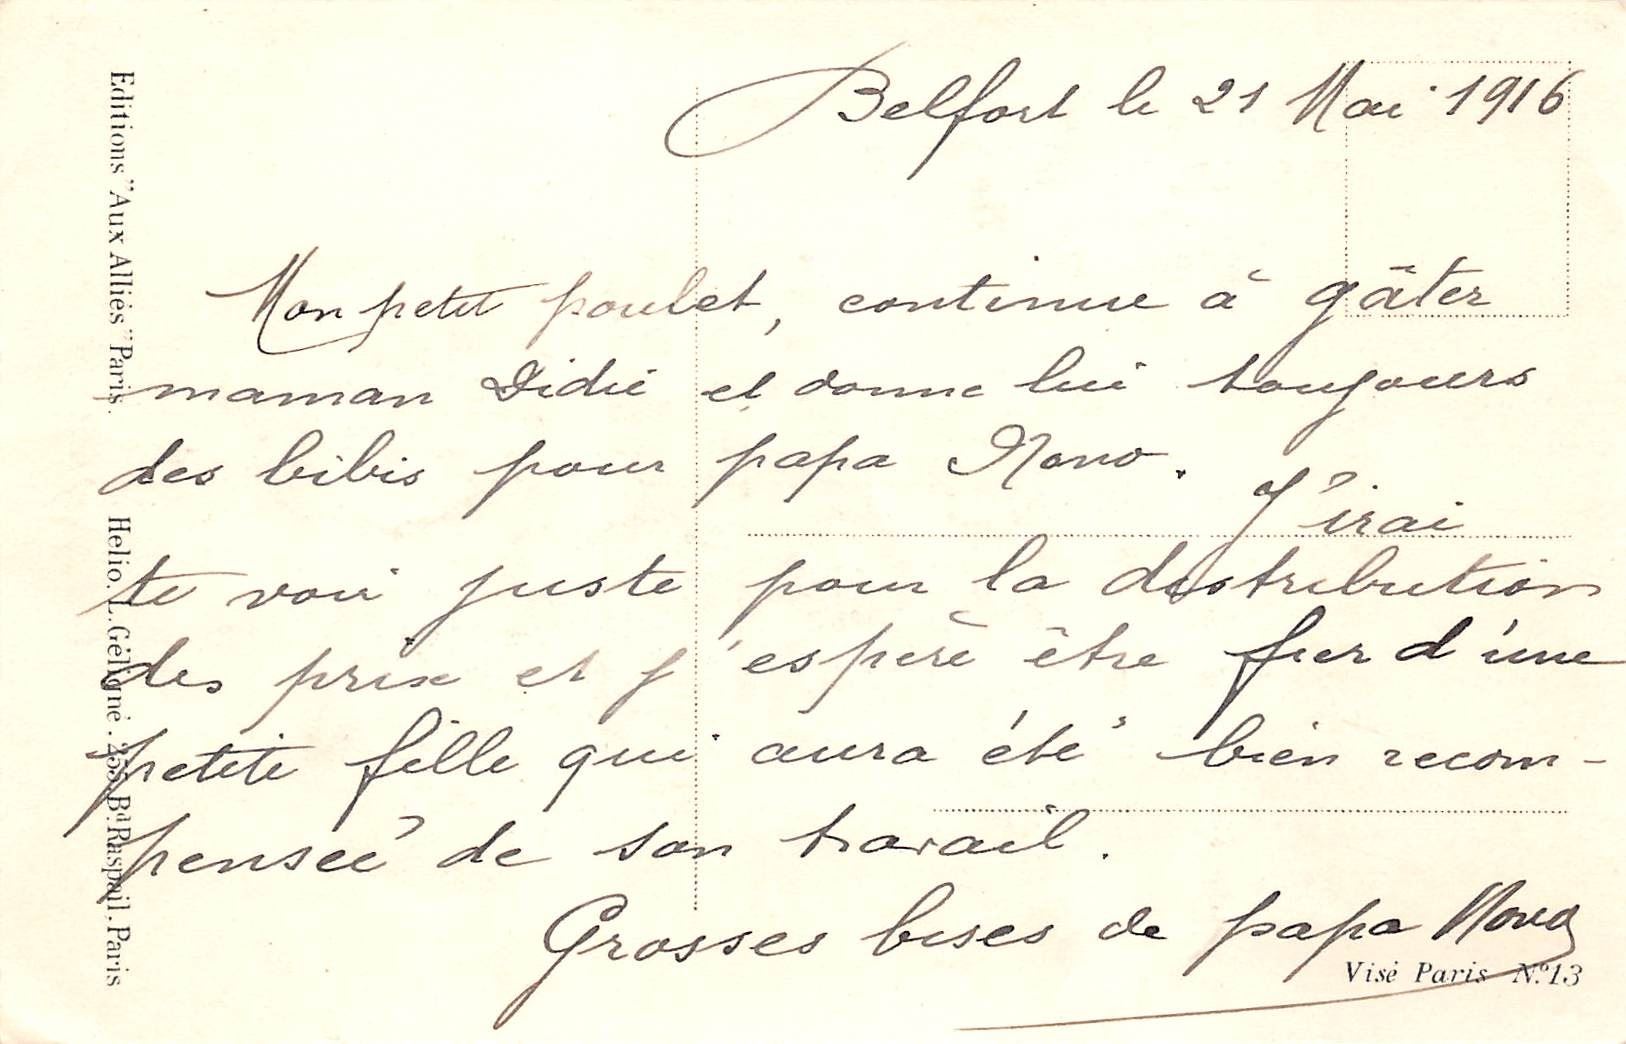 Belfort le 21 Mai 1916
Mon petit poulet, continue à gâter
maman Didie et donne lui toujours
des bibis pour papa Nono. J'irai
te voir juste pour la distribution
des prix et j'espère être fier d'une
petite fille qui aura été bien recom-
pensée de son travail.
Grosses bises de papa Nono
Editions "Aux Alliés" Paris. Helio. L. Géligné. 255 Bd Raspail. Paris
Visé Paris N.º 13